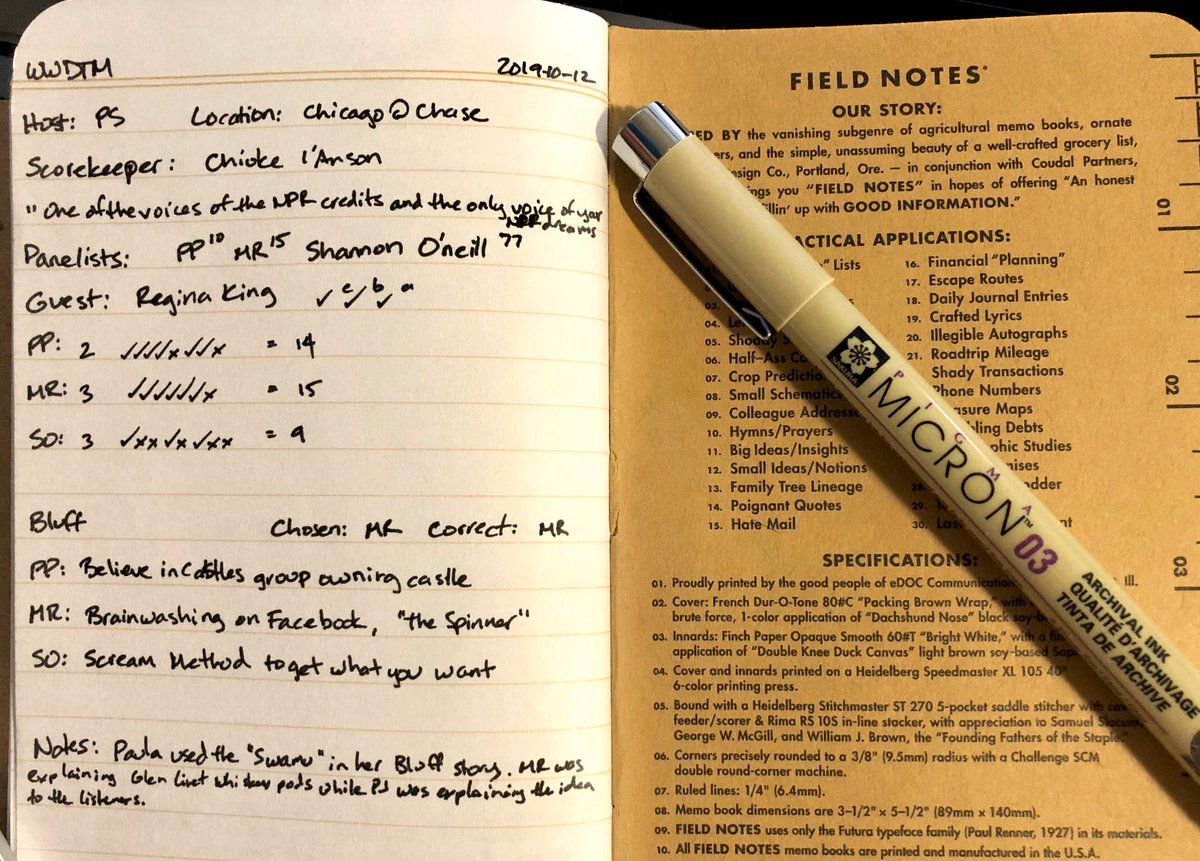 WWDTM 2019-10-12
Host: PS Location: Chicago @ Chase
Scorekeeper: Chioke I'Anson
"One of the voices of the NPR credits and the only voice of your
NPR dreams
Panelists: PP 10 MR 15 Shannon O'neill 77
Guest: Regina King ✓ c✓ b✓ a
PP: 2 ✓✓✓✓x✓✓x = 14
MR: 3 ✓✓✓✓✓✓x = 15
SO: 3 ✓xx✓x✓xx = 9
Bluff Chosen: MR Correct: MR
PP: Believe in castles group owning castle
MR: Brainwashing on Facebook, "the Spinner"
SO: Scream Method to get what you want
Notes: Paula used the "Swami" in her Bluff story. MR was
explaining Glen livet whiskey pods while PS was explaining the idea
to the listeners.
FIELD NOTES
OUR STORY:
ED BY the vanishing subgenre of agricultural memo books, ornate
ers, and the simple, unassuming beauty of a well-crafted grocery list,
esign Co., Portland, Ore. — in conjunction with Coudal Partners,
ings you "FIELD NOTES" in hopes of offering "An honest
illin' up with GOOD INFORMATION."
ACTICAL APPLICATIONS:
Lists
03.
04. Le
05. Shoddy S
06. Half-Ass Ca
07. Crop Predictio
08. Small Schematics
09. Colleague Addresse
10. Hymns/Prayers
11. Big Ideas/Insights
12. Small Ideas/Notions
13. Family Tree Lineage
14. Poignant Quotes
15. Hate Mail
16. Financial "Planning"
17. Escape Routes
18. Daily Journal Entries
19. Crafted Lyrics
20. Illegible Autographs
21. Roadtrip Mileage
Shady Transactions
Phone Numbers
asure Maps
bling Debts
phic Studies
mises
28. odder
29.
30. Las nt
SPECIFICATIONS:
01. Proudly printed by the good people of eDOC Communication Ill.
02. Cover: French Dur-O-Tone 80#C "Packing Brown Wrap," with
brute force, 1-color application of "Dachshund Nose" black soy-b
03. Innards: Finch Paper Opaque Smooth 60#T "Bright White," with a fin
application of "Double Knee Duck Canvas" light brown soy-based
04. Cover and innards printed on a Heidelberg Speedmaster XL 105 40"
6-color printing press.
05. Bound with a Heidelberg Stitchmaster ST 270 5-pocket saddle stitcher with
feeder/scorer & Rima RS 10S in-line stacker, with appreciation to Samuel Slocum,
George W. McGill, and William J. Brown, the "Founding Fathers of the Staple."
06. Corners precisely rounded to a 3/8" (9.5mm) radius with a Challenge SCM
double round-corner machine.
07. Ruled lines: 1/4" (6.4mm).
08. Memo book dimensions are 3–1/2" × 5–1/2" (89mm × 140mm).
09. FIELD NOTES uses only the Futura typeface family (Paul Renner, 1927) in its materials.
10. All FIELD NOTES memo books are printed and manufactured in the U.S.A.
01
02
03
SAKURA
PIGMA
MICRON™ 03
ARCHIVAL INK
QUALITÉ D'ARCHIVAGE
TINTA DE ARCHIVE